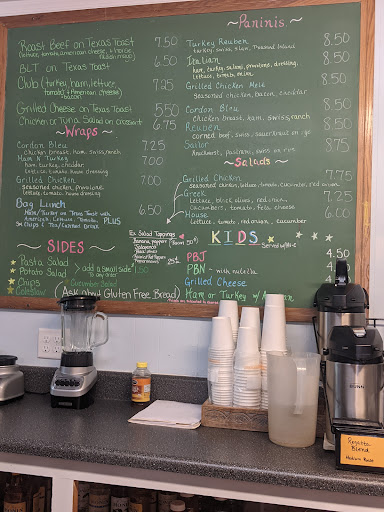 Roast Beef on Texas Toast 7.50
(lettuce, tomato, american cheese, + horse radish mayo)
BLT on Texas Toast 6.50
Club (turkey, ham, lettuce, tomato, + american cheese) 7.25
Grilled Cheese on Texas Toast 5.50
Chicken or Tuna Salad on croissant 6.75
~Wraps~
Cordon Bleu 7.25
chicken breast, ham, swiss, ranch
Ham N Turkey 7.00
ham, turkey, cheddar
lettuce, tomato, ranch dressing
Grilled Chicken 7.00
seasoned chicken, provolone
lettuce, tomato, house dressing
Bag Lunch 6.50
Ham/Turkey on Texas Toast with
American, Lettuce, Tomato, PLUS
Sm Chips & Tea/Canned Drink
SIDES
Pasta Salad
Potato Salad
Chips
Coleslaw
add a Small side 1.50
to any order
Cucumber Salad
(Ask about Gluten Free Bread)
~Paninis~
Turkey Reuben 8.50
turkey, swiss, slaw, Thousand Island
Italian 8.50
ham, turkey, salami, provolone, dressing,
lettuce, tomato, onion
Grilled Chicken Melt 8.50
seasoned chicken, bacon, cheddar
Cordon Bleu 8.50
chicken breast, ham, swiss, ranch
Reuben 8.50
corned beef, swiss, sauerkraut on rye
Sailor 8.75
Knockwurst, pastrami, swiss on rye
~Salads~
Grilled Chicken 7.75
seasoned chicken, lettuce, tomato, cucumber, red onion
Greek 7.25
lettuce, black olives, red onion,
cucumbers, tomato, feta cheese
House 6.00
lettuce, tomato, red onion, cucumber
Ex Salad Toppings
Banana peppers
Jalapenos
Black olives
Roasted Red Peppers
Pepperoncinis
25¢
KIDS
Served w/
PBJ 4.50
PBN - with nutella
Grilled Cheese
Ham or Turkey w/
BUNN
Regatta
Blend
Medium Roast